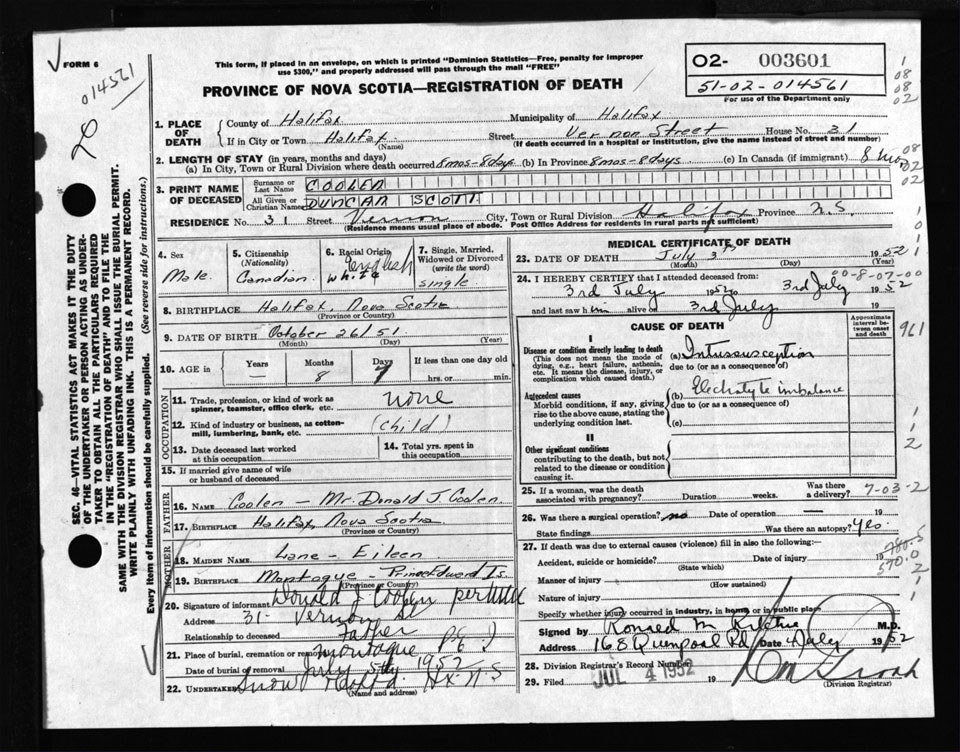 FORM 6
014561
L
This form, if placed in an envelope, on which is printed "Dominion Statistics—Free, penalty for improper
use $300," and properly addressed will pass through the mail "FREE"
PROVINCE OF NOVA SCOTIA—REGISTRATION OF DEATH
O2- 003601
51-02-014561
For use of the Department only
1. PLACE OF DEATH
County of Halifax Municipality of Halifax
If in City or Town Halifax Street Vernon Street House No. 31
(Name) (If death occurred in a hospital or institution, give the name instead of street and number)
2. LENGTH OF STAY (in years, months and days)
(a) In City, Town or Rural Division where death occurred 8mos-8days (b) In Province 8mos-8days (c) In Canada (if immigrant) 8 mos
3. PRINT NAME OF DECEASED
Surname or Last Name COOLEN
All Given or Christian Names DUNCAN SCOTT
RESIDENCE No. 31 Street Vernon City, Town or Rural Division Halifax Province N.S.
(Residence means usual place of abode. Post Office Address for residents in rural parts not sufficient)
4. Sex Male
5. Citizenship (Nationality) Canadian
6. Racial Origin English White
7. Single, Married, Widowed or Divorced (write the word) single
8. BIRTHPLACE Halifax, Nova Scotia
(Province or Country)
9. DATE OF BIRTH October 26/51
(Month) (Day) (Year)
10. AGE in Years — Months 8 Days 7 If less than one day old hrs. or min.
OCCUPATION
11. Trade, profession, or kind of work as spinner, teamster, office clerk, etc. none
12. Kind of industry or business, as cotton-mill, lumbering, bank, etc. (child)
13. Date deceased last worked at this occupation
14. Total yrs. spent in this occupation
15. If married give name of wife or husband of deceased
FATHER
16. NAME Coolen — Mr. Donald J Coolen
17. BIRTHPLACE Halifax, Nova Scotia
(Province or Country)
MOTHER
18. MAIDEN NAME Lane - Eileen
19. BIRTHPLACE Montague - Prince Edward Is.
(Province or Country)
20. Signature of informant Donald J Coolen per
Address 31- Vernon St
Relationship to deceased Father
21. Place of burial, cremation or removal Montague P.E.I
Date of burial or removal July 5th 1952
22. Undertaker Snow Hx. N.S
(Name and address)
MEDICAL CERTIFICATE OF DEATH
23. DATE OF DEATH July 3rd 1952
(Month) (Day) (Year)
24. I HEREBY CERTIFY that I attended deceased from:
00-8-07-00
3rd July 1952 to 3rd July 1952
and last saw him alive on 3rd July 19
CAUSE OF DEATH
Approximate interval between onset and death
I
Disease or condition directly leading to death
(This does not mean the mode of dying, e.g., heart failure, asthenia, etc. It means the disease, injury, or complication which caused death.)
(a) Intussusception
due to (or as a consequence of)
Antecedent causes
Morbid conditions, if any, giving rise to the above cause, stating the underlying condition last.
(b) Electrolyte imbalance
due to (or as a consequence of)
(c)
II
Other significant conditions
contributing to the death, but not related to the disease or condition causing it.
25. If a woman, was the death associated with pregnancy? Duration weeks. Was there a delivery? 7-03-2
26. Was there a surgical operation? no Date of operation — 19
State findings Was there an autopsy? Yes
27. If death was due to external causes (violence) fill in also the following:—
Accident, suicide or homicide? Date of injury 19
(State which)
570.0
Manner of injury
(How sustained)
Nature of injury
Specify whether injury occurred in industry, in home or in public place
Signed by Ronald M Ritchie M.D.
Address 168 Quinpool Rd Date 4 July 1952
28. Division Registrar's Record Number
29. Filed JUL 4 1952 19
(Division Registrar)
SEC. 46—VITAL STATISTICS ACT MAKES IT THE DUTY
OF THE UNDERTAKER OR PERSON ACTING AS UNDER-
TAKER TO OBTAIN ALL THE PARTICULARS REQUIRED
IN THE "REGISTRATION OF DEATH" AND TO FILE THE
SAME WITH THE DIVISION REGISTRAR WHO SHALL ISSUE THE BURIAL PERMIT.
WRITE PLAINLY WITH UNFADING INK. THIS IS A PERMANENT RECORD.
Every item of information should be carefully supplied. (See reverse side for instructions.)
1
08
08
02
08
02
02
961